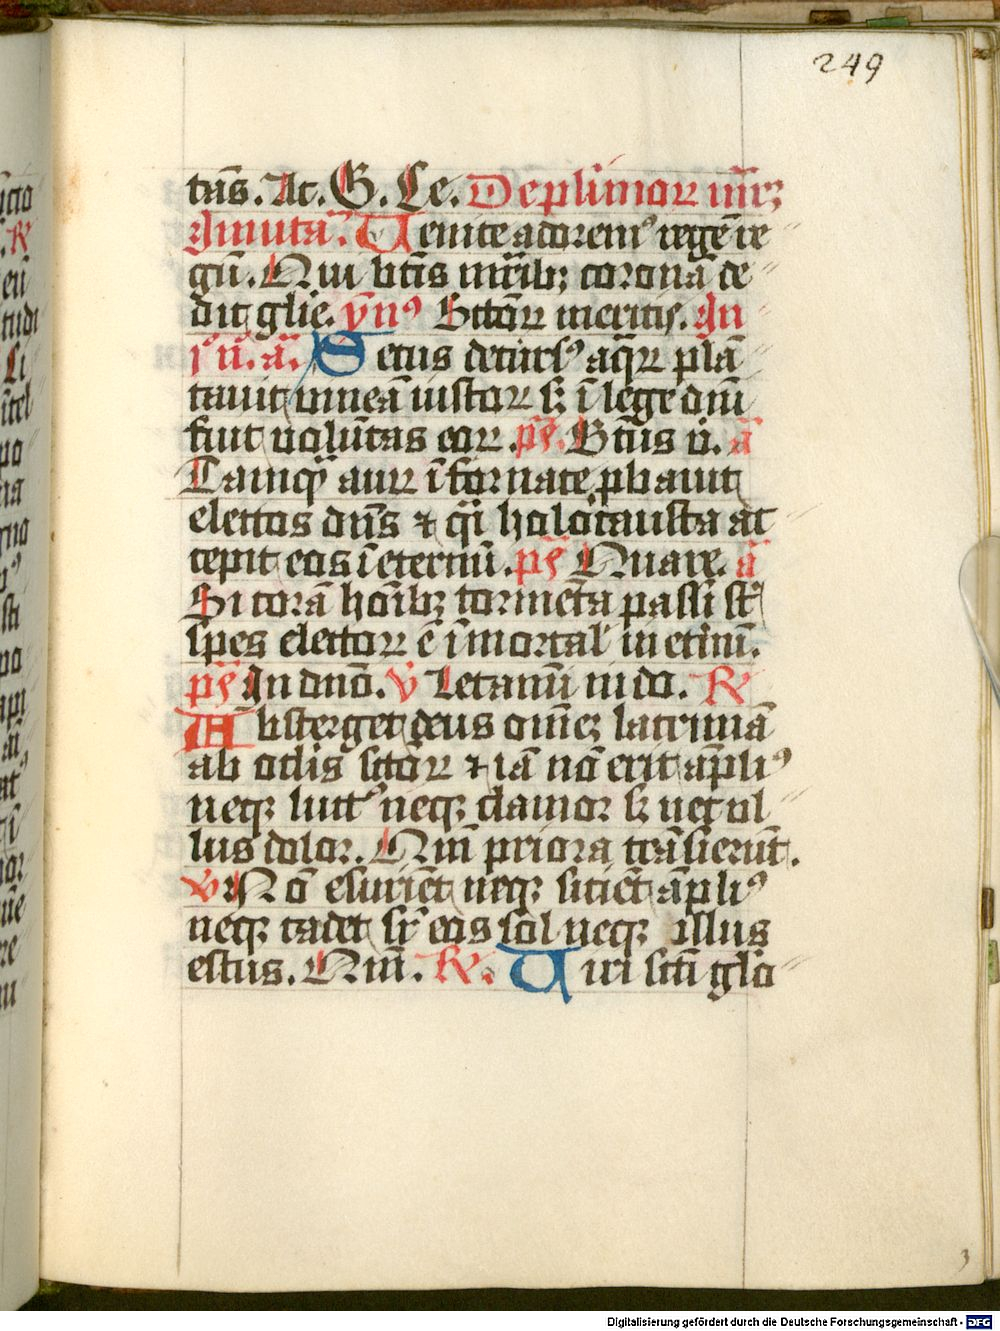 249
tūs. Ac. G. Le. De plimoꝝ mr̄ꝫ
Inuita. Uenite adorem⁹ regē re
gū. Qui ūtis mr̄ibꝫ coronā de
dit glīe. ȳn⁹ Sctōꝝ meritis. In
j⁰ n̄. a. Secus decurs⁹ aq̄ꝝ plā
tauit vineā iustoꝝ sꝫ ī lege dnī
fuit volūtas eoꝝ. pꝭ. Btūs ū. a
Tamqͣ auꝝ ī fornace pbauit
electos dn̄s ⁊ qͣi holocausta ac
cepit eos ī eternū. pꝭ Quare. a
Si corā hoībꝫ tormēta passi st̄
spes electoꝝ ē īmortal' in etnū.
pꝭ In dnō. v̄ Letamī in dō. R
Absterget deus omēꝫ lacrimā
ab oclīs sctōꝝ ⁊ iā nō erit āpli⁹
neqꝫ luct⁹ neqꝫ clamor sꝫ nec ul
lus dolor. Qm̄ priora trāsierūt.
v̄ Nō esuriēt neqꝫ sitiēt āpli⁹
neqꝫ cadet sr̄ eos sol neqꝫ ullus
estus. Qm̄. R. Uiri sctī glo
3
Digitalisierung gefördert durch die Deutsche Forschungsgemeinschaft - DFG